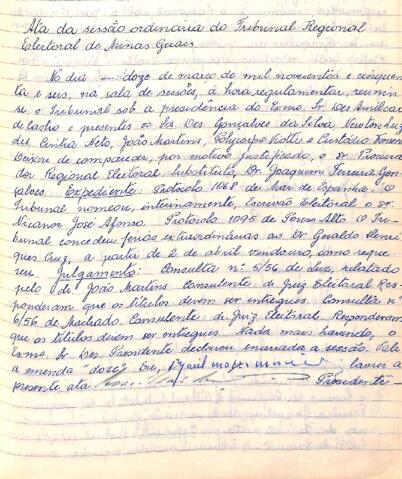 Ata da sessão ordinária do Tribunal Regional
Eleitoral de Minas Gerais
No dia doze de março de mil novecentos e cinquen
ta e seis, na sala de sessão, à hora regulamentar, reuniu
se o Tribunal sob a presidência do Exmo. Sr. Des. Amilcar
de Castro e presentes os Srs. Des. Gonçalves da Silva, Newton Luz,
Drs. Cintra Neto, João Martins, Polycarpo Viotti e Custódio
Deixou de comparecer, por motivo justificado, o Dr. Procura
dor Regional Eleitoral Substituto, Dr. Joaquim Ferreira Gon
çalves. Expediente: Protocolo 1068 de Mar de Espanha. O
Tribunal nomeou, interinamente, Escrivão Eleitoral o Sr.
Nicanor José Afonso. Protocolo 1095 de Pouso Alto. O Tri
bunal concedeu férias extraordinárias ao Dr. Geraldo Henri
ques Cruz, a partir de 2 de abril vindouro, como reque
reu. Julgamento: Consulta nº 5/56 de Luz, relatado
pelo dr. João Martins. Consulente: dr. Juiz Eleitoral. Res
ponderam que os títulos devem ser entregues. Consulta nº
6/56 de Machado. Consulente: dr. Juiz Eleitoral. Responderam
que os títulos devem ser entregues. Nada mais havendo, o
Exmo. Sr. Des. Presidente declarou encerrada a sessão. Vale
a emenda "doze". Eu, lavrei a
presente ata. Presidente -